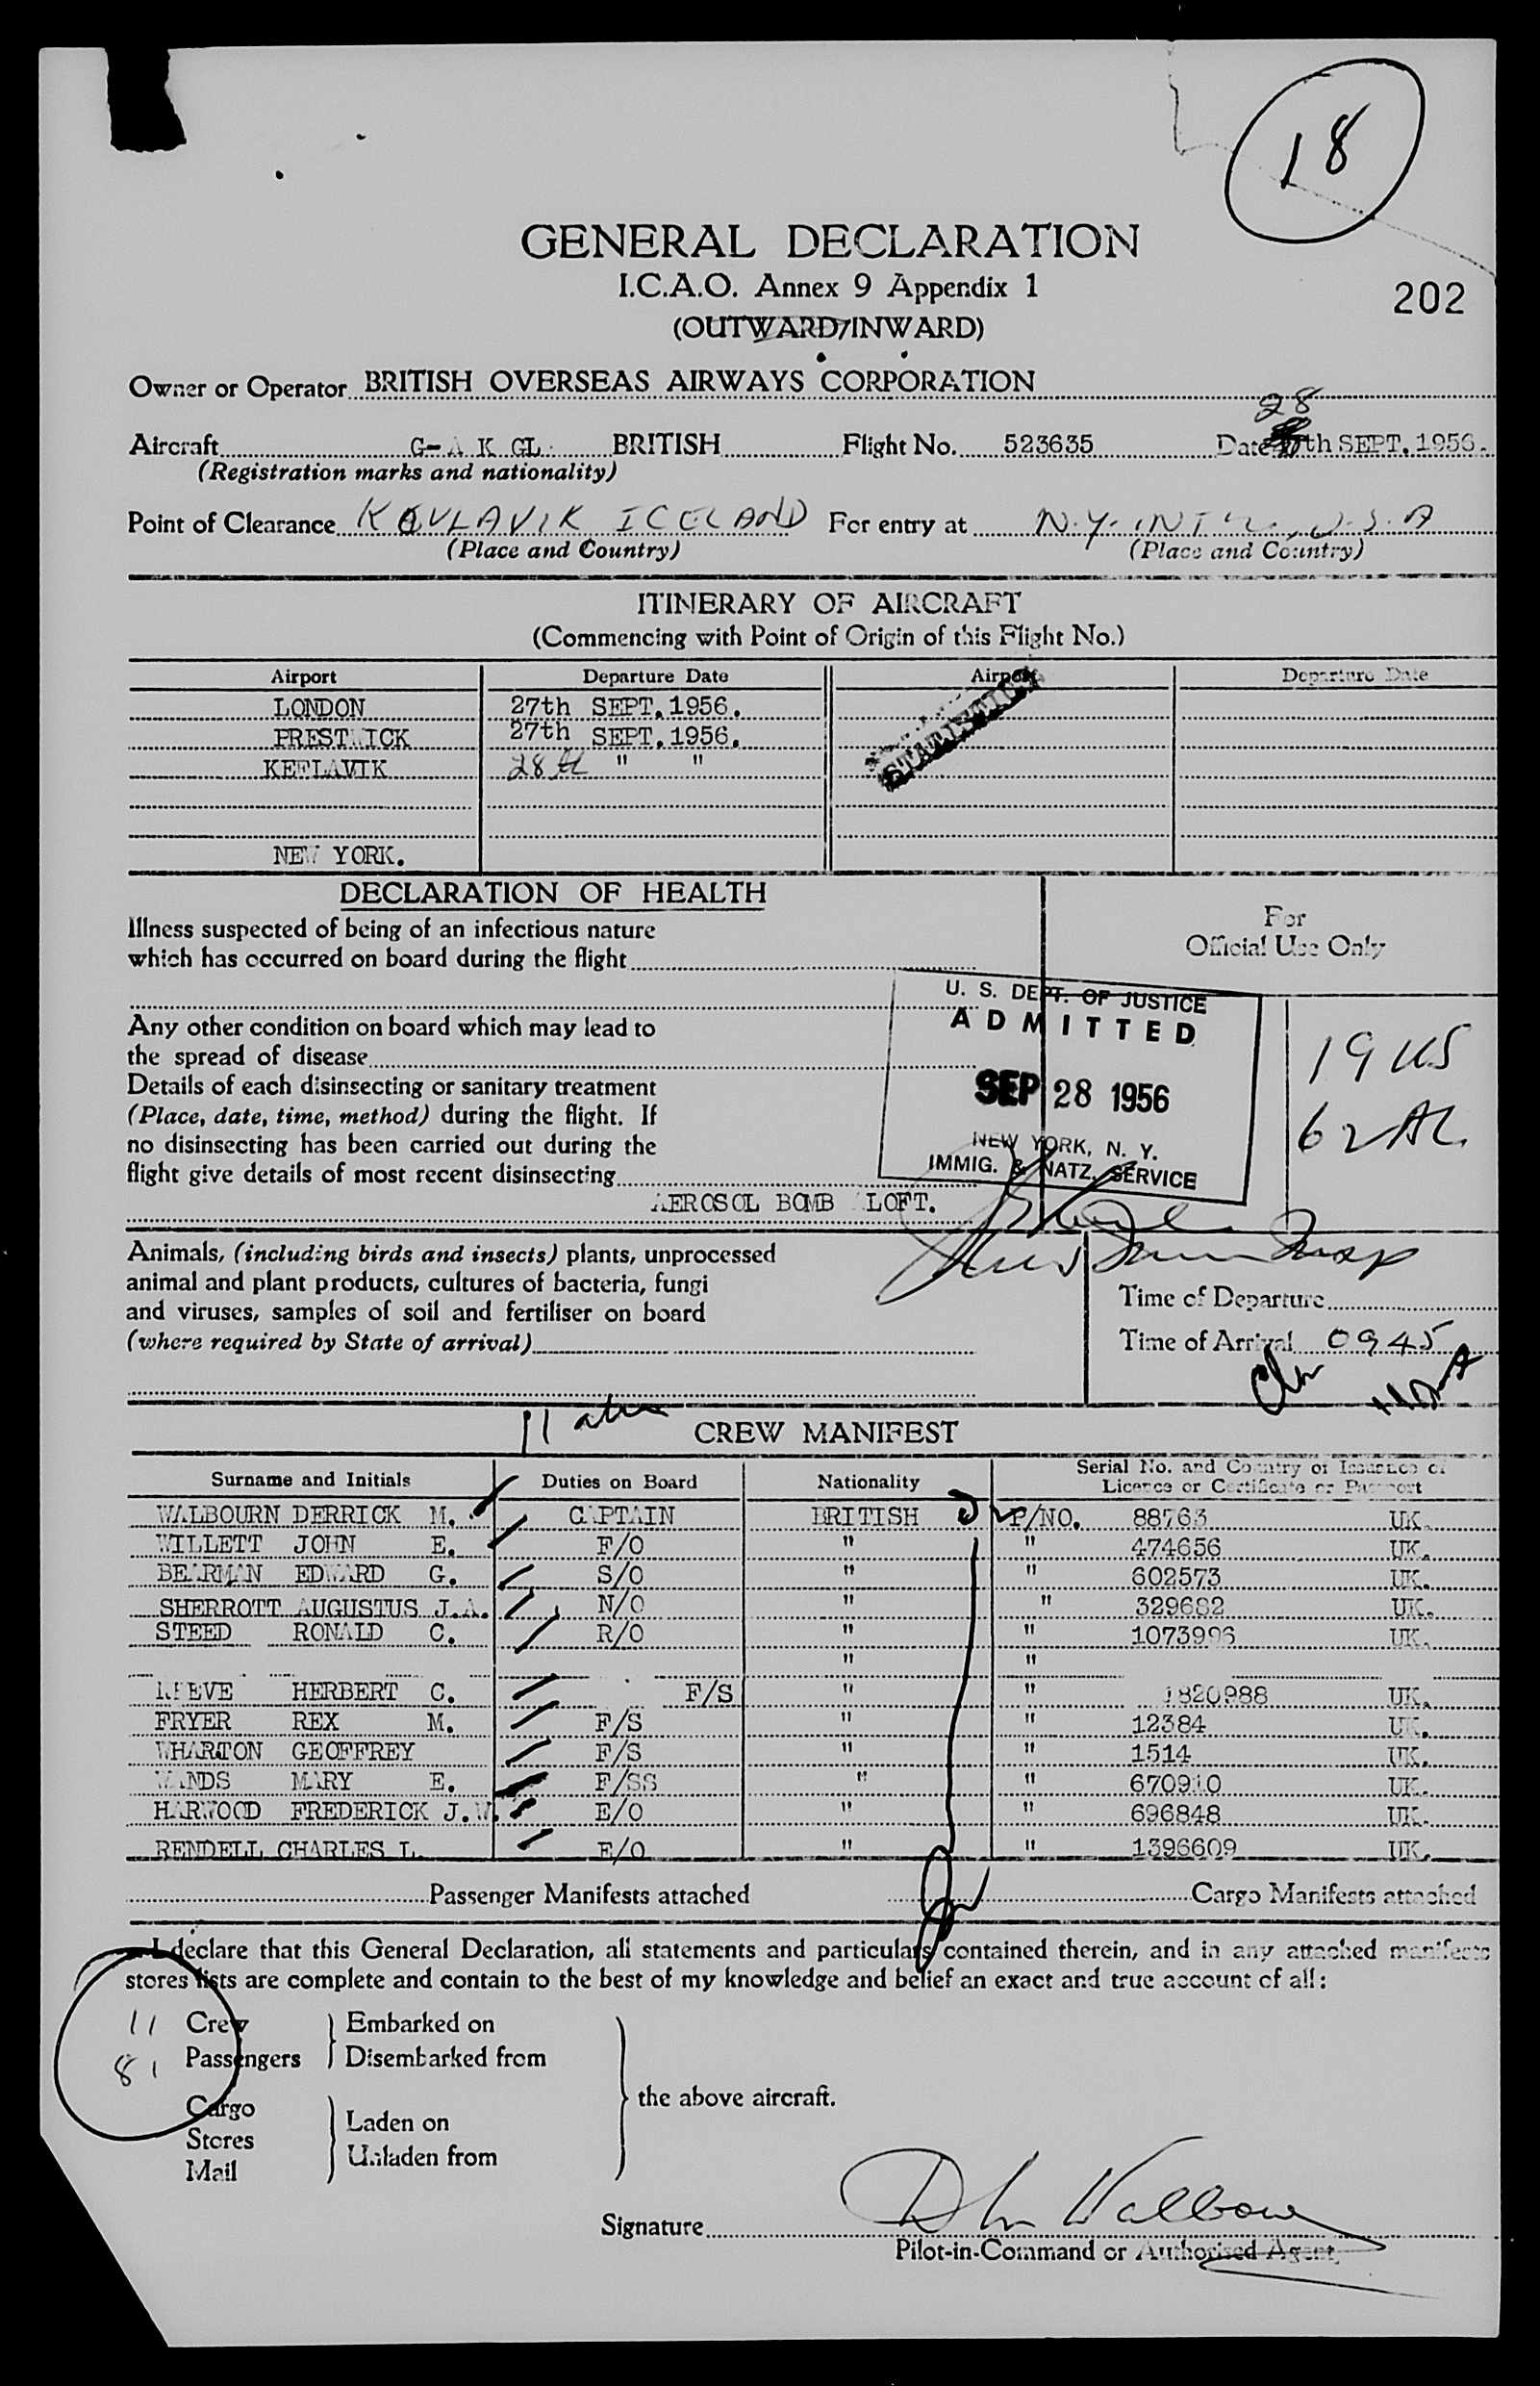 18
GENERAL DECLARATION
I.C.A.O. Annex 9 Appendix 1
202
(OUTWARD/INWARD)
Owner or Operator BRITISH OVERSEAS AIRWAYS CORPORATION
28
Aircraft G-A K GL BRITISH Flight No. 523635 Date th SEPT. 1956.
(Registration marks and nationality)
Point of Clearance KEVLAVIK ICELAND For entry at N.Y. INT'L. U.S.A
(Place and Country) (Place and Country)
ITINERARY OF AIRCRAFT
(Commencing with Point of Origin of this Flight No.)
Airport Departure Date Airport Departure Date
LONDON 27th SEPT. 1956.
PRESTWICK 27th SEPT. 1956.
KEFLAVIK 28th " "
STATISTICS
NEW YORK.
DECLARATION OF HEALTH
For
Official Use Only
Illness suspected of being of an infectious nature
which has occurred on board during the flight
U. S. DEPT. OF JUSTICE
ADMITTED
SEP 28 1956
NEW YORK, N. Y.
IMMIG. & NATZ. SERVICE
19 US
62 AL
Any other condition on board which may lead to
the spread of disease
Details of each disinsecting or sanitary treatment
(Place, date, time, method) during the flight. If
no disinsecting has been carried out during the
flight give details of most recent disinsecting
AEROSOL BOMB ALOFT.
Animals, (including birds and insects) plants, unprocessed
animal and plant products, cultures of bacteria, fungi
and viruses, samples of soil and fertiliser on board
(where required by State of arrival)
Time of Departure
Time of Arrival 0945
11
CREW MANIFEST
Surname and Initials Duties on Board Nationality Serial No. and Country of Issuance of Licence or Certificate or Passport
WALBOURN DERRICK M. CAPTAIN BRITISH P/NO. 88763 UK.
WILLETT JOHN E. F/O " " 474656 UK.
BEARMAN EDWARD G. S/O " " 602573 UK.
SHERROTT AUGUSTUS J.A. N/O " " 329682 UK.
STEED RONALD C. R/O " " 1073996 UK.
" "
REEVE HERBERT C. F/S " " 1820988 UK.
FRYER REX M. F/S " " 12384 UK.
WHARTON GEOFFREY F/S " " 1514 UK.
WANDS MARY E. F/SS " " 670910 UK.
HARWOOD FREDERICK J.W. E/O " " 696848 UK.
RENDELL CHARLES L. E/O " " 1396609 UK.
Passenger Manifests attached Cargo Manifests attached
I declare that this General Declaration, all statements and particulars contained therein, and in any attached manifests
stores lists are complete and contain to the best of my knowledge and belief an exact and true account of all:
11 Crew Embarked on
81 Passengers Disembarked from
the above aircraft.
Cargo
Stores Laden on
Mail Unladen from
Signature D M Walbourn
Pilot-in-Command or Authorised Agent